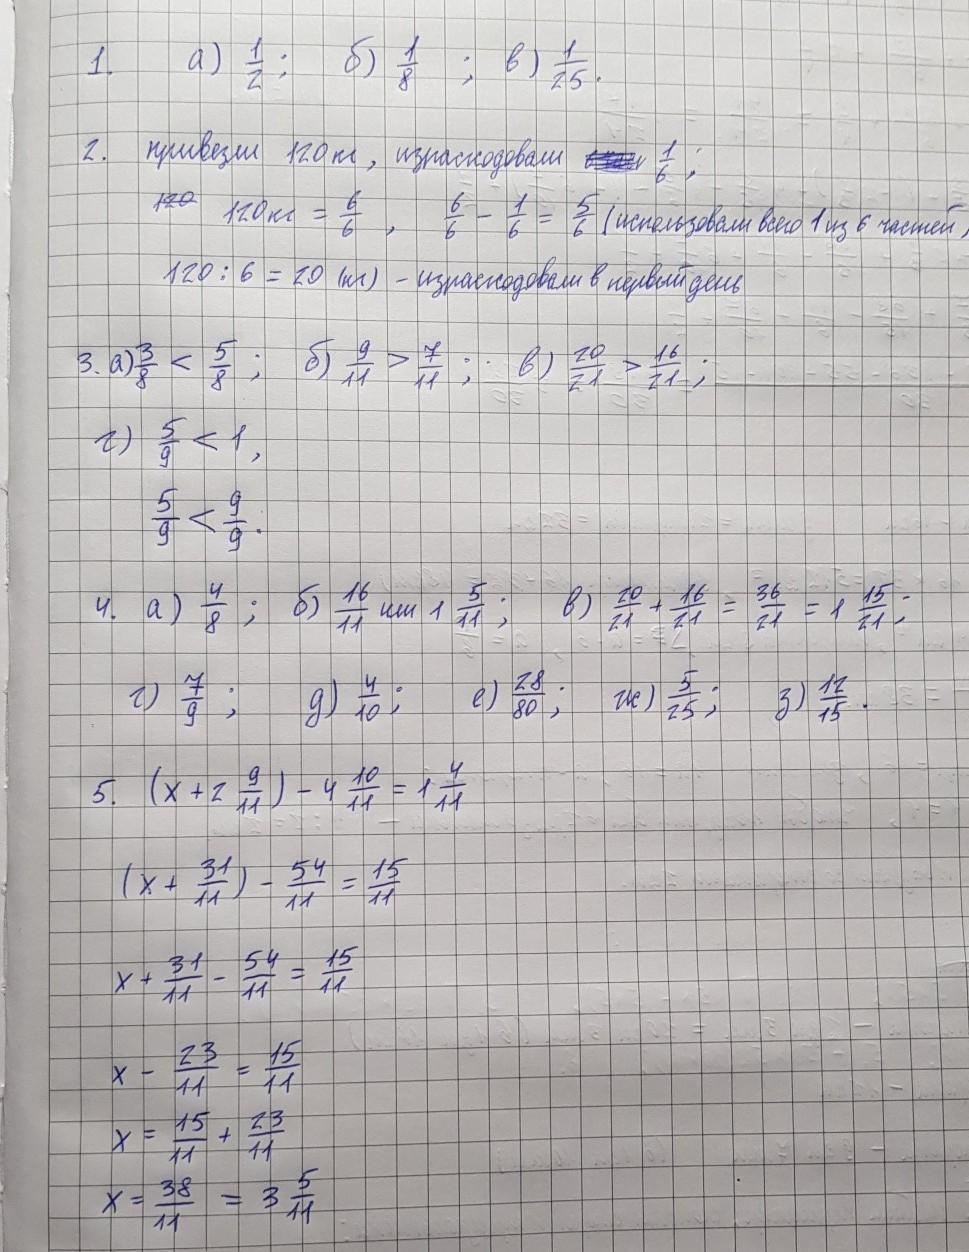 1. а) 1/2; б) 1/8; в) 1/25.
2. привезли 120 кг, израсходовали 1/6;
120 120 кг = 6/6, 6/6 - 1/6 = 5/6 (использовали всего 1 из 6 частей)
120 : 6 = 20 (кг) - израсходовали в первый день
3. а) 3/8 < 5/8; б) 9/11 > 7/11; в) 20/21 > 16/21;
г) 5/9 < 1,
5/9 < 9/9.
4. а) 4/8; б) 16/11 или 1 5/11; в) 20/21 + 16/21 = 36/21 = 1 15/21;
г) 7/9; д) 4/10; е) 28/80; ж) 5/25; з) 12/15.
5. (x + 2 9/11) - 4 10/11 = 1 4/11
(x + 31/11) - 54/11 = 15/11
x + 31/11 - 54/11 = 15/11
x - 23/11 = 15/11
x = 15/11 + 23/11
x = 38/11 = 3 5/11